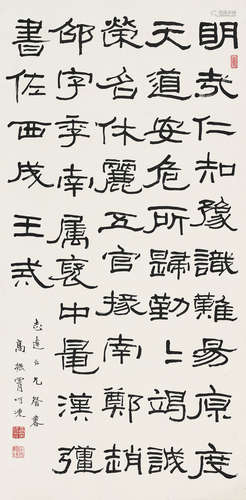 明哉仁知豫識難易原度
天道安危所歸勤〻竭誠
榮名休麗五官掾南鄭趙
邵字季南屬褒中鼂漢彊
書佐西成王戒
志遠 兄
高振霄呵凍